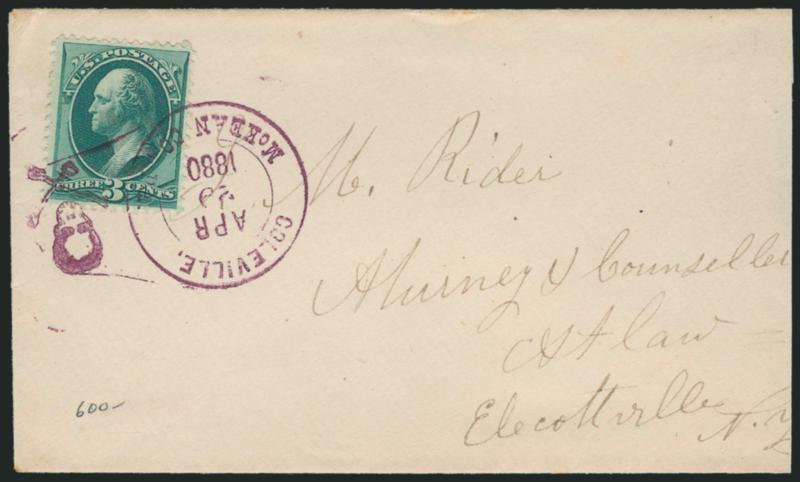 U.S. POSTAGE
THREE 3 CENTS
COLEVILLE, McKEAN
APR
1880
M. Rider
Aturney & Counseller
At law
Elecottville
N.Y
600-